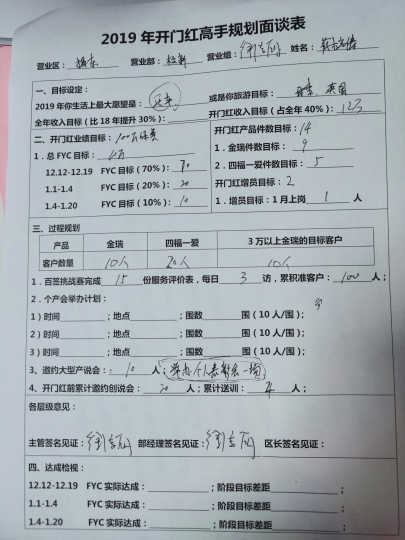 2019 年开门红高手规划面谈表
营业区： 营业部： 营业组： 姓名：
一、目标设定：
2019 年你生活上最大愿望是： 或是你旅游目标： 英国
全年收入目标（比 18 年提升 30%）： 开门红收入目标（占全年 40%）：12万
二、开门红业绩目标：100万保费 开门红产品件数目标：14
1．总 FYC 目标： 1．金瑞件数目标： 9
12.12-12.19 FYC 目标（70%）： 70 2．四福一爱件数目标： 5
1.1-1.4 FYC 目标（20%）： 20 开门红增员目标：2
1.4-1.20 FYC 目标（10%）： 10 1．增员目标：1 月上岗 1 人
三、过程规划
产品 金瑞 四福一爱 3 万以上金瑞的目标客户
客户数量 10人 20人 10人
1．百签挑战赛完成 15 份服务评价表，每日 3 访，累积准客户： 100 人；
2．个产会举办计划：
1）时间 ；地点 ；围数 围（10 人/围）；
2）时间 ；地点 ；围数 围（10 人/围）；
3）时间 ；地点 ；围数 围（10 人/围）；
3、邀约大型产说会： 10 人；举办个人 会一场
4、开门红前累计邀约创说会： 20 人；累计送训： 人；
各层级意见：
主管签名见证： 部经理签名见证： 区长签名见证：
四、达成检视：
12.12-12.19 FYC 实际达成： ；阶段目标差距 ；
1.1-1.4 FYC 实际达成： ；阶段目标差距 ；
1.4-1.20 FYC 实际达成： ；阶段目标差距 ；